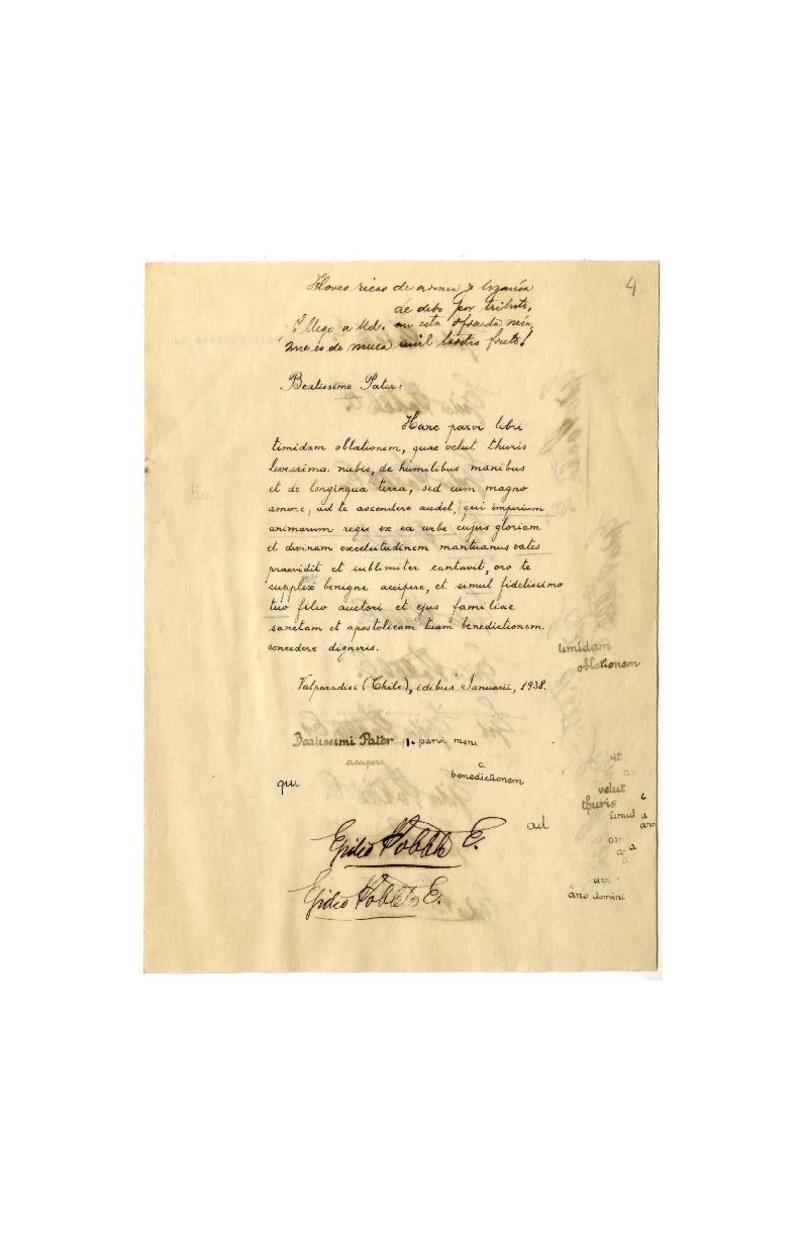 4
Flores ricas de aroma y lozanía
de debo por tributo,
I llego a Ud. con esta ofrenda mía,
de musa tristes fruto!
Beatissime Pater:
Hanc parvi libri
timidam oblationem, quae velut thuris
levissima nubis, de humilibus manibus
et de longinqua terra, sed cum magno
amore, ad te ascendere audet, qui imperium
animarum regis ex ea urbe cujus gloriam
et divinam excelsitudinem mantuanus vates
praevidit et sublimiter cantavit, oro te
supplex benigne accipere, et simul fidelissimo
tuo filio auctori et ejus familiae
sanctam et apostolicam tuam benedictionem
concedere digneris.
timidam
oblationem
Valparadisi (Chile), idebus Januarii, 1938.
Beatissimi Pater parvi
accipere
a
benedictionem
qu
ut
a
velut
thuris
a
ad
a
a
Egidio Poblete E.
Egidio Poblete E.
am
áno domini